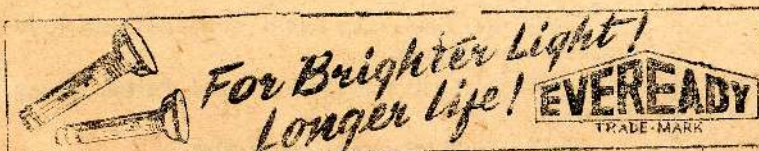 For Brighter Light!
Longer life!
EVEREADY
TRADE-MARK